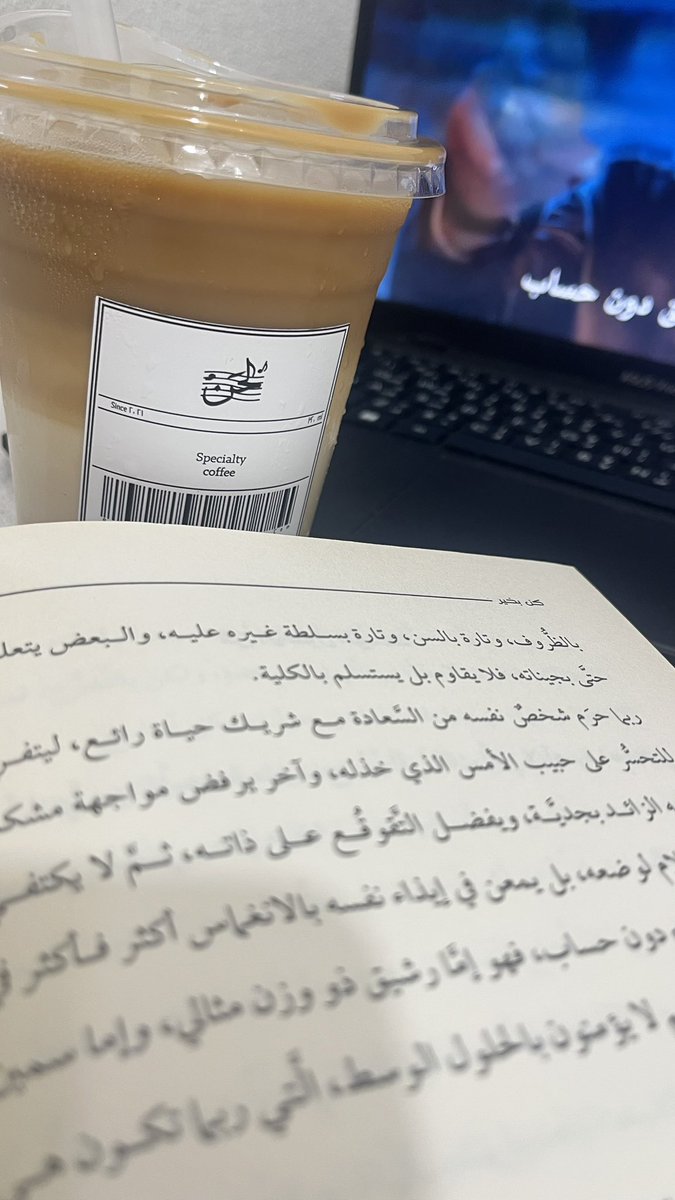 لحن
Since ٢٠٢١
Specialty
coffee
دون حساب
كن بخير
بالظُّروف، وتارة بالسن، وتارة بسلطة غيره عليه، والبعض
حتَّى بجيناته، فلا يقاوم بل يستسلم بالكلية.
ربما حرَم شخصٌ نفسه من السَّعادة مع شريك حياة رائع،
للتحسُّر على حبيب الأمس الذي خذله، وآخر يرفض مواجهة
الزائد بجديَّة، ويفضل التَّقوقُع على ذاته، ثمَّ لا يكتفي
لوضعه، بل يمعن في إيذاء نفسه بالانغماس أكثر فأكثر
دون حساب، فهو إمَّا رشيق ذو وزن مثالي، وإما سمين
لا يؤمنون بالحلول الوسط، الَّتي ربما تكون هي